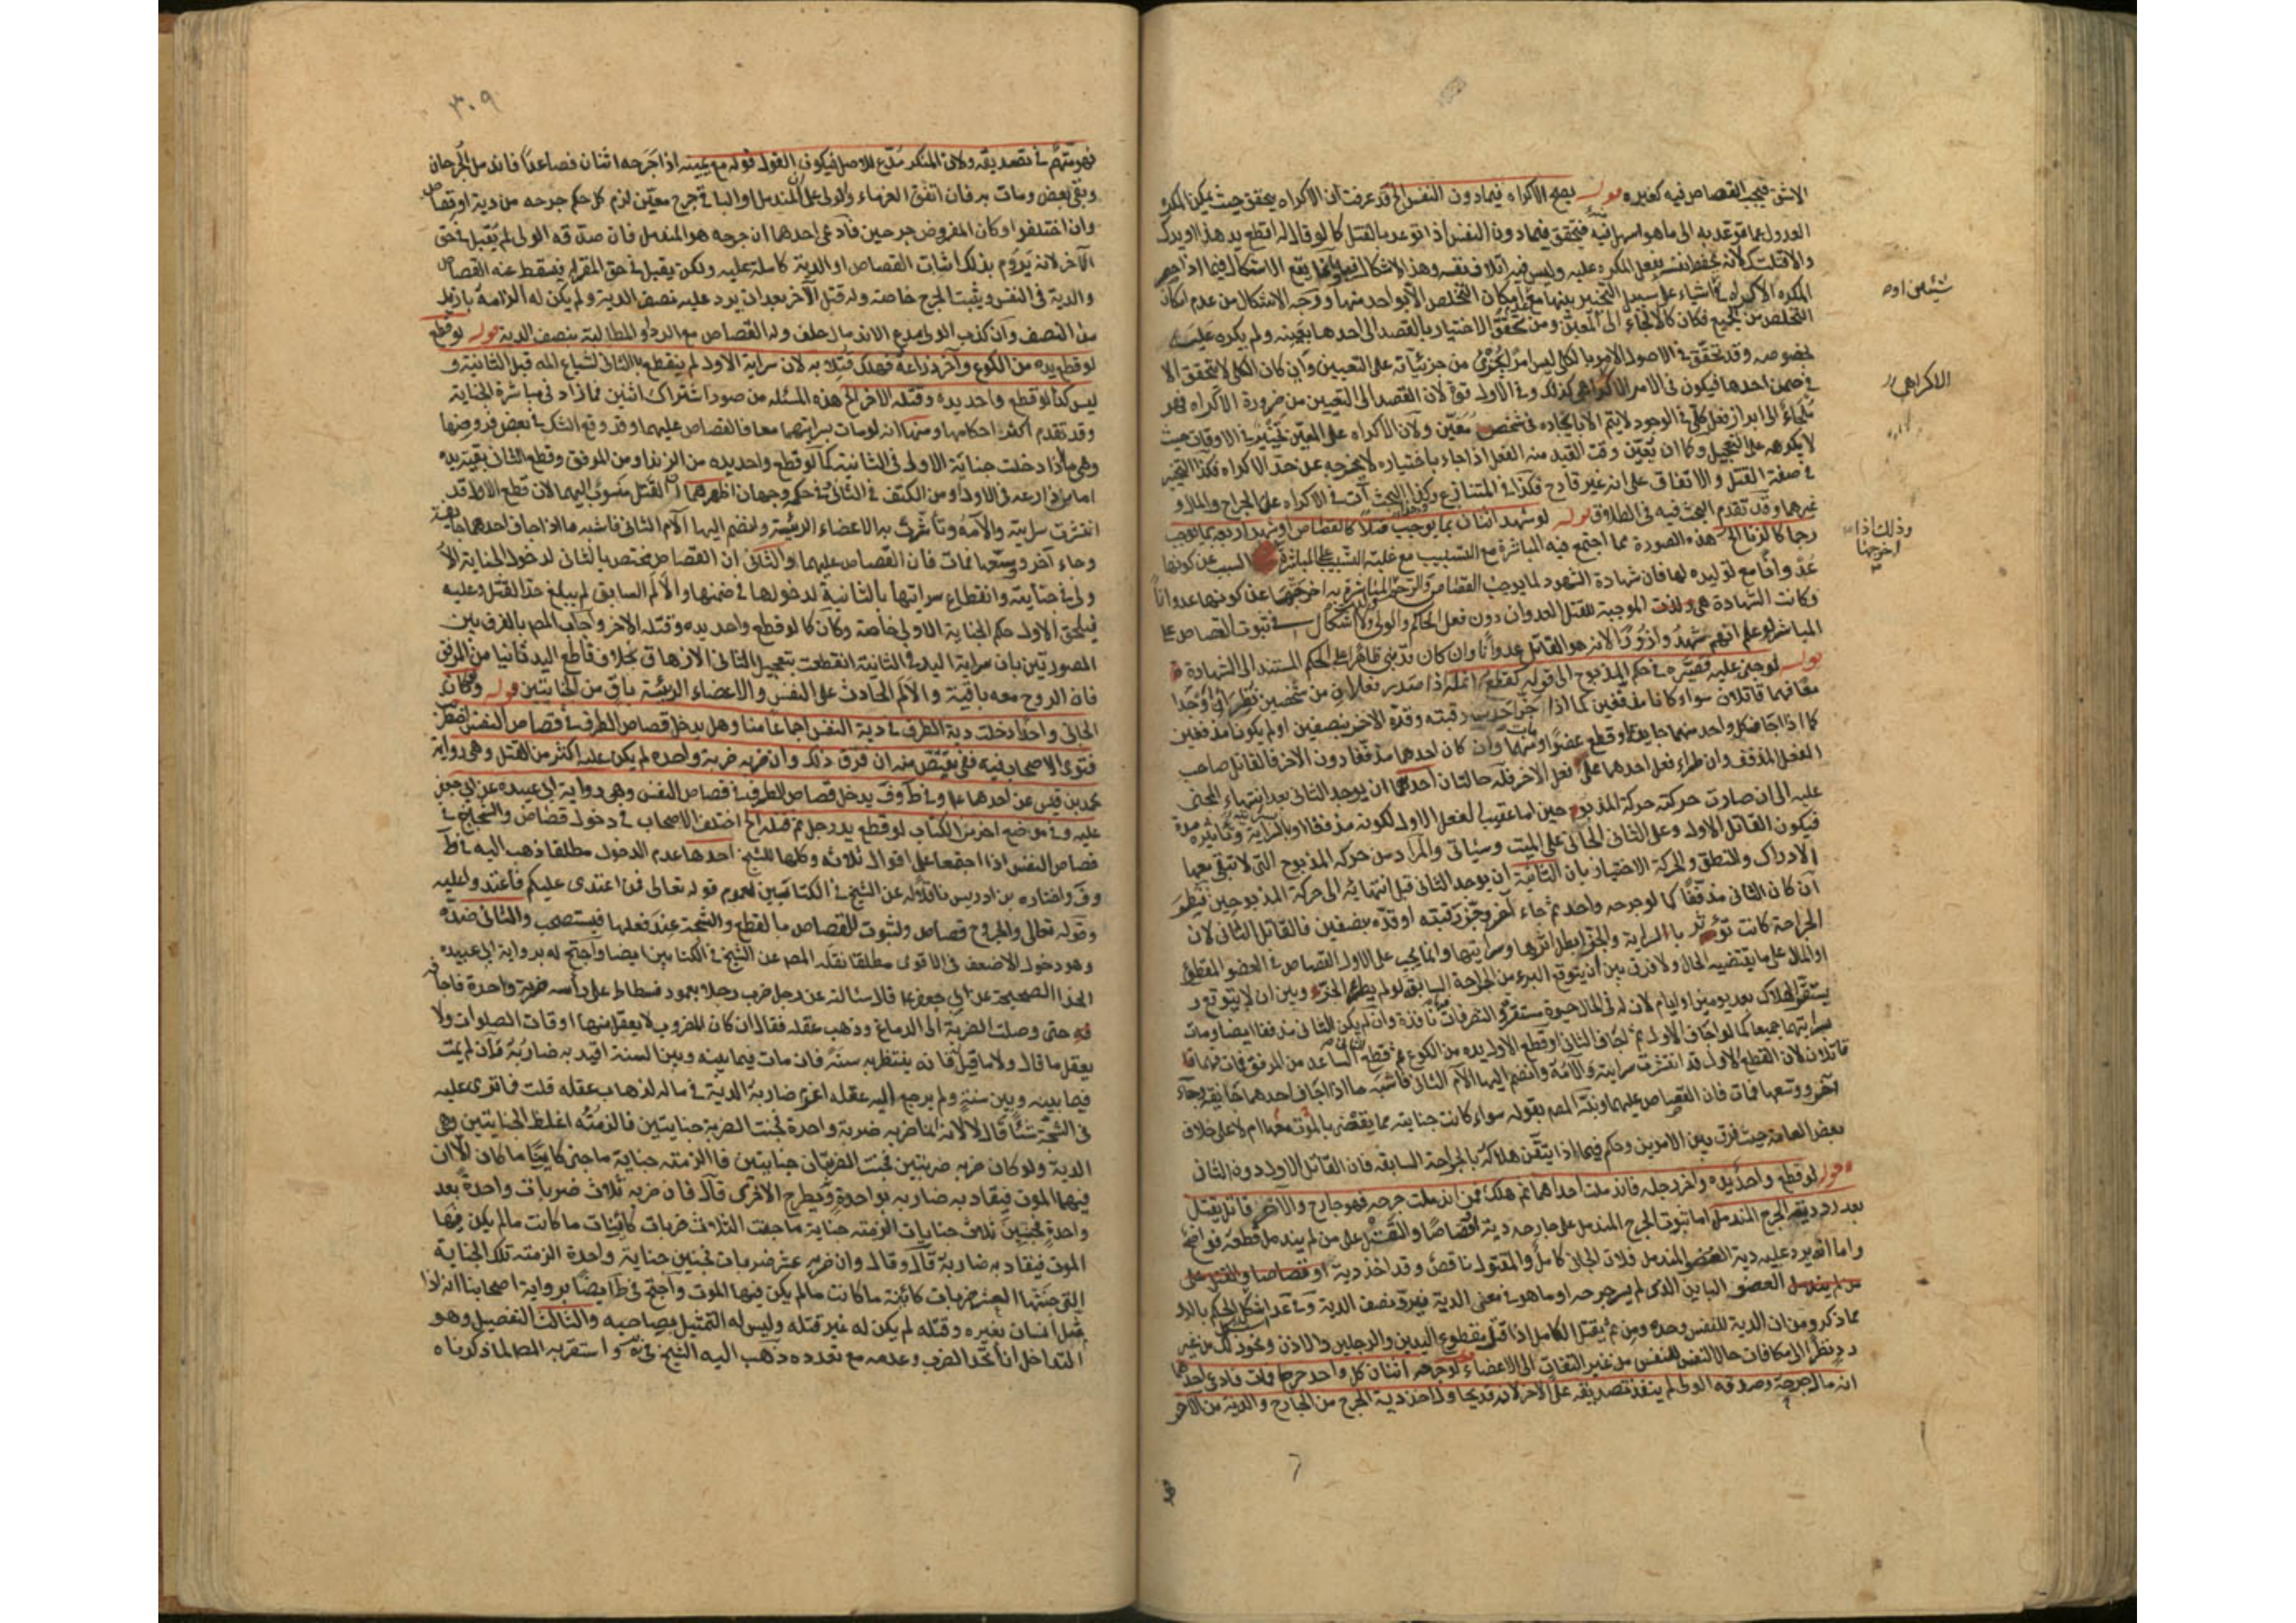 الاشق فيجب القصاص فيه كغيره قوله يصح الاكراه فيمادون النفس الخ قد عرفت ان الاكراه يتحقق حيث يمكن المكره
العدول عما توعد به الى ما هو اسهل منه فيتحقق فيمادون النفس اذا توعد بالقتل كما لو قال له اقطع يد هذا او يدك
والا قتلتك لانه يحفظ نفسه بفعل المكره عليه وليس فيه اتلاف نفسه وهذا لا اشكال فيه وانما يقع الاشكال فيما اذا
المكره الاكراه في اشياء على سبيل التخيير بينها مع امكان التخلص الا بواحد منها ووجه الاشكال من عدم امكان
التخلص من الجميع فكان كالالجاء الى المعين ومن تحقق الاختيار بالقصد الى احدها بعينه ولم يكره عليه
بخصوصه وقد تحقق في الاصول الامر بالكلي ليس امرا بجزئي من جزئياته على التعيين وان كان الكلي لا يتحقق الا
في ضمن احدها فيكون في الامر الاكراهي كذلك وفي الاول قوة لان القصد الى التعيين من ضرورة الاكراه فهو
ملجاء الى ابراز فعل كلي في الوجود لا يتم الا بايجاده في شخص معين ولان الاكراه على المعين تخيير في الاوقات حيث
لا يكرهه على التعجيل وكما ان تعين وقت القيد منه الفعل اذا جاء باختياره لا يخرجه عن حد الاكراه فكذا التخيير
في صفة القتل والاتفاق على انه غير قادح فكذا في المتنازع وكذا البحث آت في الاكراه على الجراح والمال و
غيرهما وقد تقدم البحث فيه في الطلاق قوله لو شهد اثنان بما يوجب قتلا كالقصاص او شهد اربعة بما يوجب
رجما كالزنا الخ هذه الصورة مما اجتمع فيه المباشرة مع التسبيب مع غلبة السبب على المباشرة السبب عن كونها
عدوانا مع توليده لها فان شهادة الشهود لما يوجب القصاص والرجم المباشرة به اخرجتها عن كونها عدوانا
وكانت الشهادة هي ولدت الموجبة للقتل العدوان دون فعل الحاكم والولي ولا اشكال في ثبوت القصاص على
المباشر لو علم انهم شهدوا زورا لانه هو القاتل عدوانا وان كان قد بنى ظاهرا على الحكم المستند الى الشهادة
قوله لو جنى عليه فصيره في حكم المذبوح الى قوله كقطع انملة اذا صدر فعلان من شخصين نظر ان وجدا
معا فهما قاتلان سواء كانا مذففين كما اذا جز احدهما رقبته وقده الاخر بنصفين او لم يكونا مذففين
كما اذا اجاف كل واحد منهما جايفة او قطع عضوا ومات منهما وان كان احدهما مذففا دون الاخر فالقاتل صاحب
الفعل المذفف وان طراء فعل احدهما على فعل الاخر فله حالتان احدهما ان يوجد الثاني بعد انتهاء المجنى
عليه الى ان صارت حركته حركة المذبوح حين اما عقيب الفعل الاول لكونه مذففا او بالسراية وتأثيره مدة
فيكون القاتل الاول وعلى الثاني الجاني على الميت وسيأتي والمراد من حركة المذبوح التي لا تبقى معها
الادراك والنطق والحركة الاختيار بان الثانية ان يوجد الثاني قبل انتهائه الى حركة المذبوحين فينظر
ان كان الثاني مذففا كما لو جرحه واحد ثم جاء آخر وجز رقبته او قده بنصفين فالقاتل الثاني لان
الجراحة كانت تؤثر بالسراية والجز ابطل اثرها وسرايتها وانما يجب على الاول القصاص في العضو المقطوع
او المال على ما يقتضيه الحال ولا فرق بين ان يتوقع البرء من الجراحة السابقة لو لم يطرء الجز وبين ان لا يتوقع و
يستقر الهلاك بعد يومين او ايام لان له في المال حيوة مستقرة والتصرفات نافذة وان لم يكن الثاني مذففا ايضا ومات
بسرايتهما جميعا كما لو اجاف الاول ثم اجاف الثاني او قطع الاول يده من الكوع ثم قطع الثاني الساعد من المرفق فمات فهما
قاتلان لان القطع الاول قد انتشرت سرايته والآمه وانضم اليها الآم الثاني فاشبه ما اذا اجاف احدهما جايفة وجاء
آخر ووسعها فمات فان القصاص عليهما ونبه المصـ بقوله سواء كانت جنايته مما يقضى بالموت معها ام لا على خلاف
بعض العامة حيث فرق بين الامرين وحكم فيما اذا تيقن هلاكه بالجراحة السابقة فان القاتل الاول دون الثاني
قوله لو قطع واحد يده واخر رجله فاندملت احداهما ثم هلك فمن اندملت جرحه فهو جارح والآخر قاتل يقتل
بعد رد دية الجرح المندمل اما ثبوت الجرح المندمل على جارحه دية او قصاصا والقتل على من لم يندمل قطعه فواضح
واما انه يرد عليه دية العضو المندمل فلان الجاني كامل والمقتول ناقص وقد اخذ دية او قصاصا والقتل على
من لم يندمل العضو الباين الذي لم يسر جرحه او ما هو في معنى الدية فيرد نصف الدية وفي عد اشكل الحكم بالرد
مما ذكر ومن ان الدية للنفس وحده ومن ثم يقتل الكامل اذا قتل مقطوع اليدين والرجلين والاذن ونحو ذلك من غير
رد نظرا الى مكافات حال النفس للنفس من غير التفات الى الاعضاء قوله لو جرحه اثنان كل واحد جرحا فمات فادعى احدهما
اندمال جرحه وصدقه الولي لم ينفذ تصديقه على الآخر لانه قد يحاول اخذ دية الجرح من الجارح والدية من الآخر
شيئين او
الاكراهي
وذلك اذا
اخرجها
فهو
٣٠٩
فهو متهم في تصديقه ولان المنكر مدع للاصل فيكون القول قوله مع يمينه اذا جرحه اثنان فصاعدا فاندمل الجرحان
وبقى بعض ومات به فان اتفق الغرماء والولي على ان المندمل او الباقي جرح معين لزم كل حكم جرحه من دية او قصاص
وان اختلفوا وكان المفروض جرحين فادعى احدهما ان جرحه هو المندمل فان صدقه الولي لم يقبل في حق
الآخر لانه يروم بذلك اثبات القصاص او الدية كاملة عليه ولكن يقبل في حق المقر له فيسقط عنه القصاص
والدية في النفس ويثبت الجرح خاصة وله قتل الآخر بعد ان يرد عليه نصف الدية ولم يكن له الزامه بازيد
من النصف وان كذب الولي مدع الاندمال حلف وله القصاص مع الرد والمطالبة بنصف الدية قوله لو قطع
لو قطع يده من الكوع وآخر ذراعه فهلك قتلا به لان سراية الاول لم ينقطع بالثاني لشياع المه قبل الثانية و
ليس كذا لو قطع واحد يده وقتله الآخر الخ هذه المسئلة من صور اشتراك اثنين فمازاد في مباشرة الجناية
وقد تقدم اكثر احكامها ومنها انه لو مات بسرايتهما معا فالقصاص عليهما وقد وقع الشك في بعض فروضها
وهي ما اذا دخلت جناية الاول في الثانية كما لو قطع واحد يده من الزند او من المرفق وقطع الثاني بقية يده
اما من ذراعه في الاول او من الكتف في الثاني ففي حكمه وجهان اظهرهما ان القتل منسوب اليهما لان قطع الاول قد
انتشرت سرايته والآمه وتأثرت به الاعضاء الرئيسة وانضم اليها الآم الثاني فاشبه ما اذا اجاف احدهما جايفة
وجاء آخر ووسعها فمات فان القصاص عليهما والثاني ان القصاص يختص بالثاني لدخول الجناية الا
ولى في جنايته وانقطاع سرايتها بالثانية لدخولها في ضمنها والالم السابق لم يبلغ حد القتل وعليه
فيلحق الاول حكم الجناية الاولى خاصة وكان كما لو قطع واحد يده وقتله الاخر واجاب المصـ بالفرق بين
الصورتين بان سراية اليد في الثانية انقطعت بتعجيل الثاني الازهاق بخلاف قاطع اليد ثانيا من المرفق
فان الروح معه باقية والالم الحادث على النفس والاعضاء الرئيسة باق من الجنايتين قوله ولو كان
الجاني واحدا دخلت دية الطرف في دية النفس اجماعا منا وهل يدخل قصاص الطرف في قصاص النفس اضطربت
فتوى الاصحاب فيه ففي يقتص منه ان فرق ذلك وان ضربه ضربة واحدة لم يكن عليه اكثر من القتل وهي رواية
محمد بن قيس عن احدهما ع وفي ط وف يدخل قصاص الطرف في قصاص النفس وهي رواية ابي عبيدة عن ابي جعفر
عليه وفي موضع اخر من الكتاب لو قطع يد رجل ثم قتله الخ اختلف الاصحاب في دخول قصاص والشجاج في
قصاص النفس اذا اجتمعا على اقوال ثلاثة وكلها للشيخ احدها عدم الدخول مطلقا ذهب اليه في ط
وف واختاره بن ادريس ناقلا له عن الشيخ في الكتابين لعموم قوله تعالى فمن اعتدى عليكم فاعتدوا عليه
وقوله تعالى والجروح قصاص ولثبوت القصاص بالقطع والشجة عند فعلها فيستصحب والثاني ضده
وهو دخول الاضعف في الاقوى مطلقا نقله المصـ عن الشيخ في الكتابين ايضا واحتج له برواية ابي عبيدة
الحذا الصحيحة عن ابي جعفر ع قال سئالته عن رجل ضرب رجلا بعمود فسطاط على رأسه ضربة واحدة فاجا
فه حتى وصلت الضربة الى الدماغ وذهب عقله فقال ان كان المضروب لا يعقل منها اوقات الصلوات ولا
يعقل ما قال ولا ما قيل فانه ينتظر به سنة فان مات فيما بينه وبين السنة اقيد به ضاربه وان لم يمت
فيما بينه وبين سنة ولم يرجع اليه عقله اغرم ضاربه الدية في ماله لذهاب عقله قلت فما ترى عليه
في الشجة شيئا قال لا لانه انما ضربه ضربة واحدة فجنت الضربة جنايتين فالزمته اغلظ الجنايتين وهي
الدية ولو كان ضربه ضربتين فجنت الضربتان جنايتين فالزمته جناية ما جنى كائنا ما كان الا ان
فيهما الموت فيقاد به ضاربه بواحدة ويطرح الاخرى قال فان ضربه ثلاث ضربات واحدة بعد
واحدة فجنين ثلاث جنايات الزمته جناية ما جنت الثلاث ضربات كائنات ما كانت مالم يكن فيها
الموت فيقاد به ضاربه قال وقال وان ضربه عشر ضربات فجنين جناية واحدة الزمته تلك الجناية
التي جنتها العشر ضربات كائنة ما كانت مالم يكن فيها الموت واحتج في ط ايضا برواية اصحابنا انه اذا
مثل انسان بغيره وقتله لم يكن له غير قتله وليس له التمثيل بصاحبه والثالث التفصيل وهو
التداخل ان اتحد الضرب وعدمه مع تعدده ذهب اليه الشيخ في واستقربه المصـ لما ذكرناه